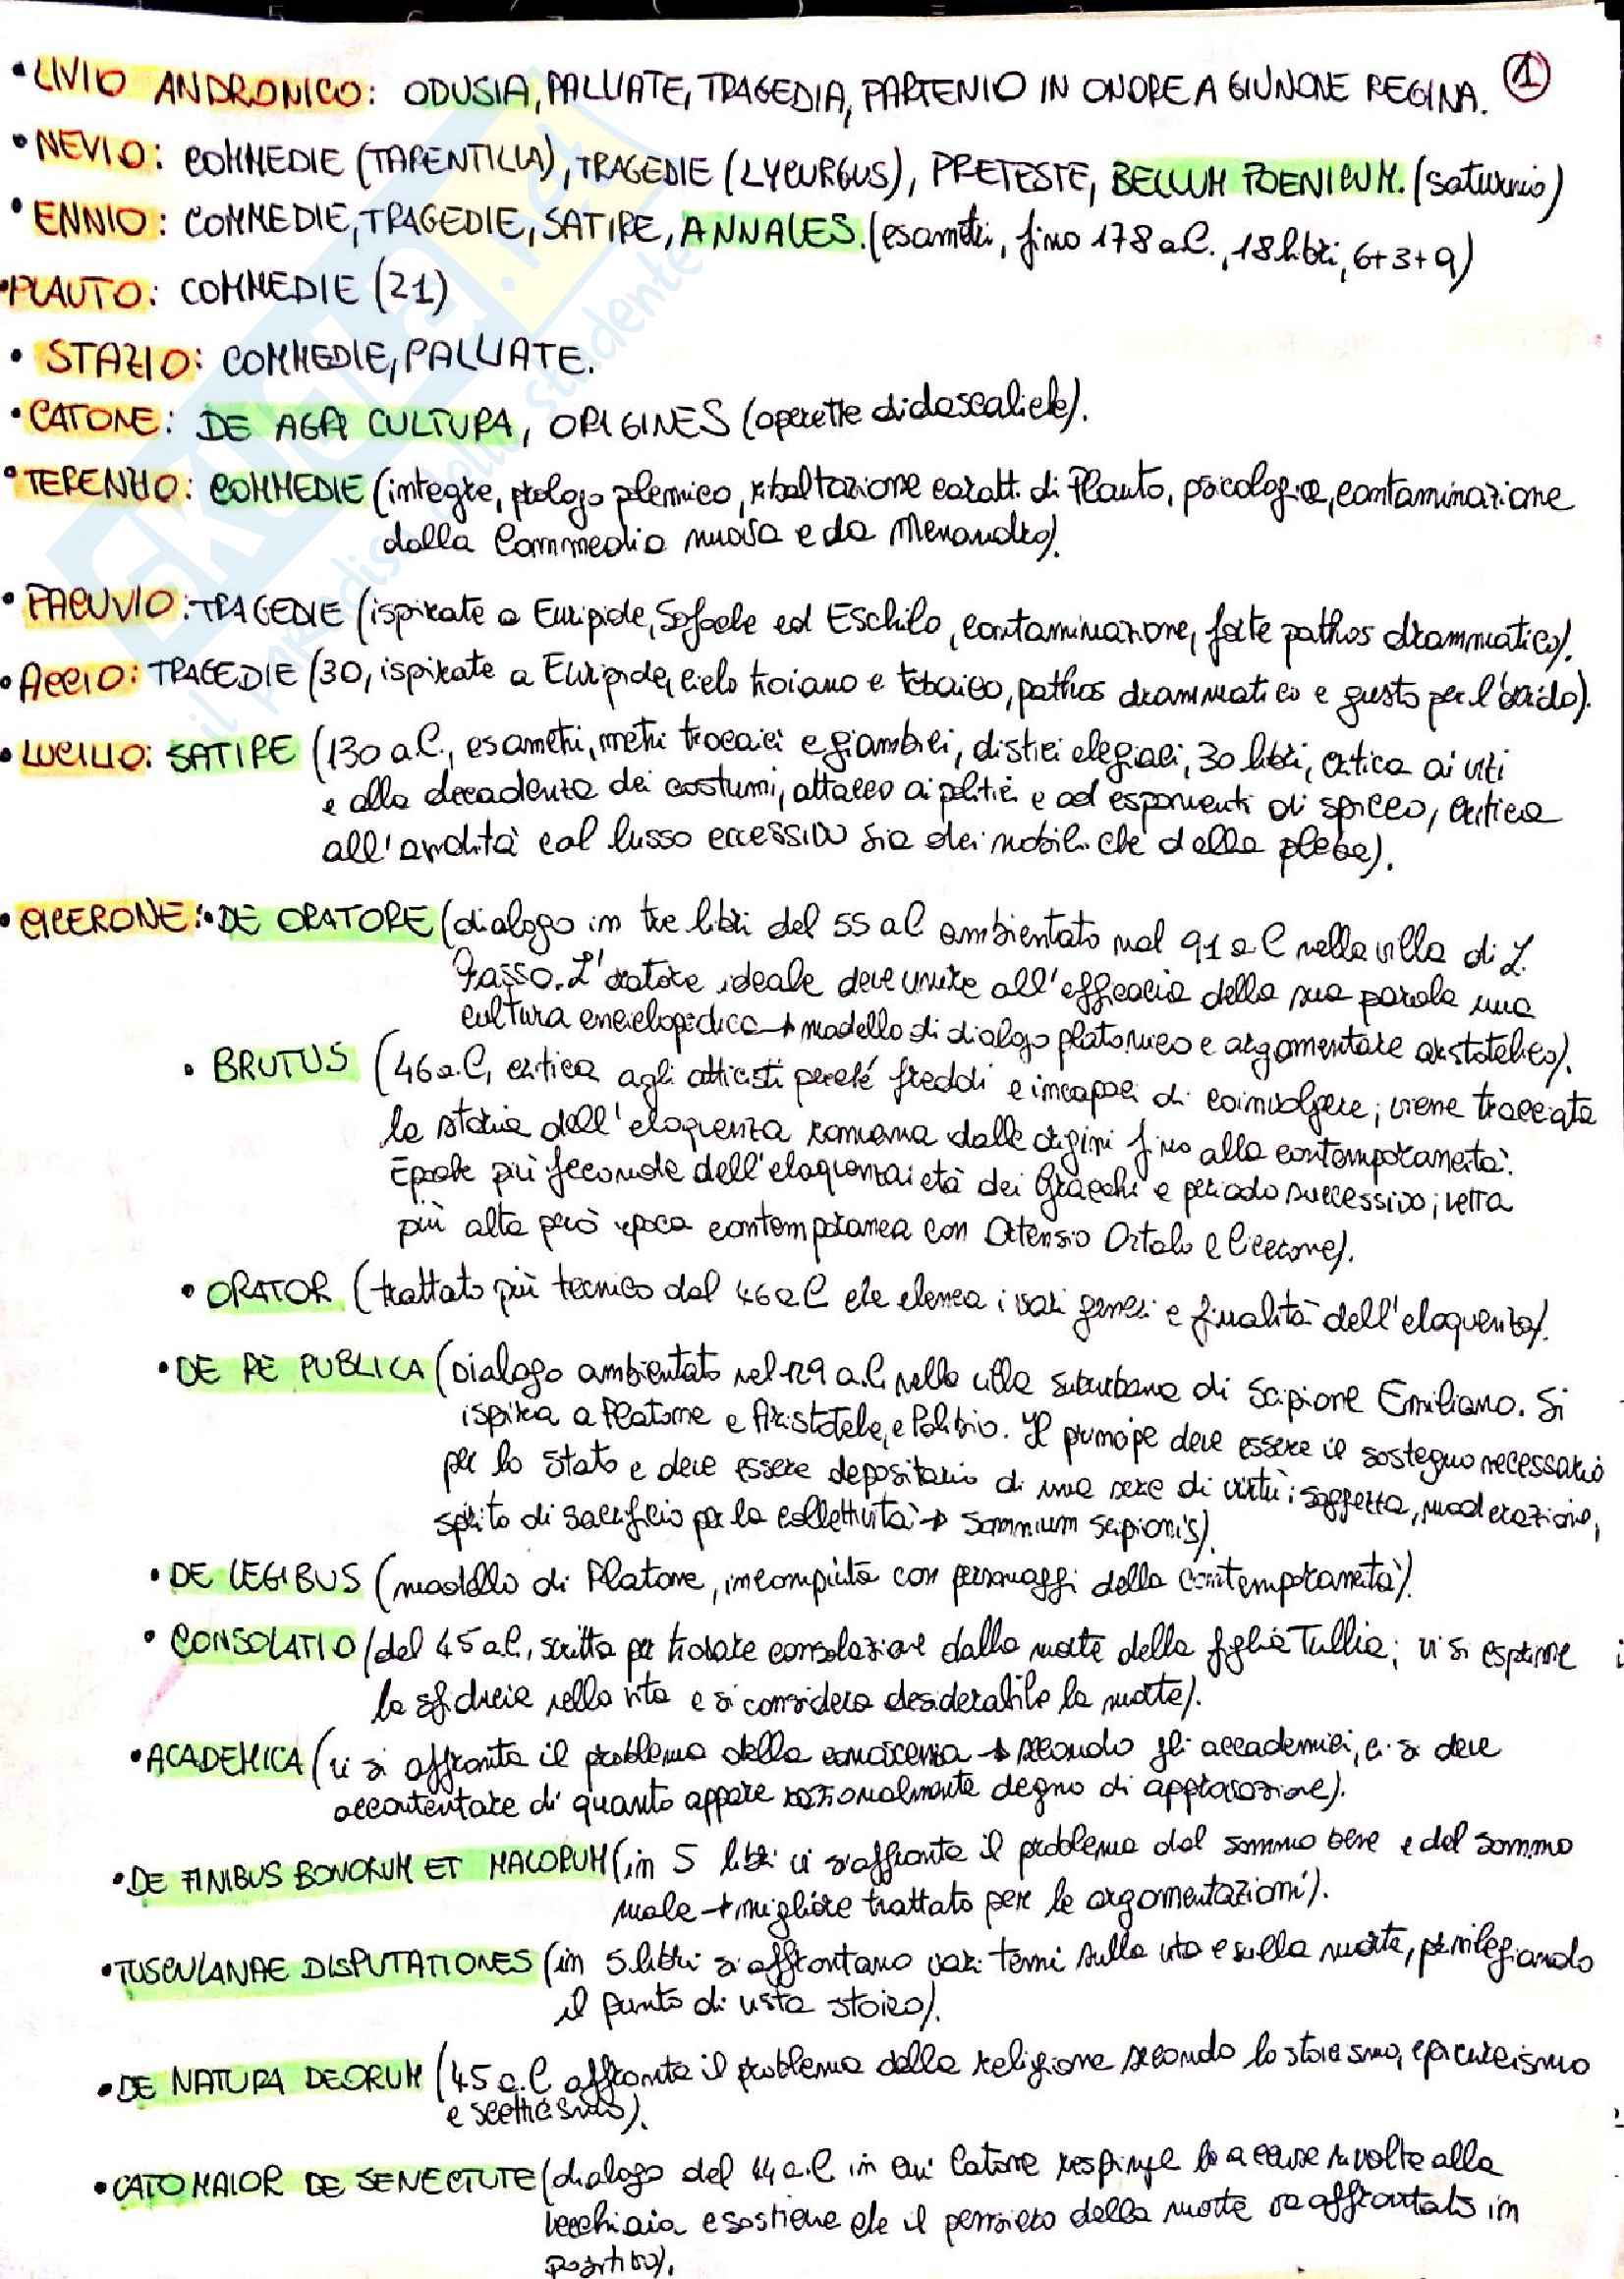 • LIVIO ANDRONICO: ODUSIA, PALLIATE, TRAGEDIA, PARTENIO IN ONORE A GIUNONE REGINA. 1
• NEVIO: COMMEDIE (TARENTILLA), TRAGEDIE (LYCURGUS), PRETESTE, BELLUM POENICUM. (saturnio)
• ENNIO: COMMEDIE, TRAGEDIE, SATIRE, ANNALES. (esametri, fino 178 a.C., 18 libri, 6+3+9)
• PLAUTO: COMMEDIE (21)
• STAZIO: COMMEDIE, PALLIATE.
• CATONE: DE AGRI CULTURA, ORIGINES (operette didascaliche).
• TERENZIO: COMMEDIE (integre, prologo plemico, ribaltazione caratt. di Plauto, psicologica, contaminazione
dalla Commedia nuova e da Menandro).
• PACUVIO: TRAGEDIE (ispirate a Euripide, Sofocle ed Eschilo, contaminazione, forte pathos drammatico).
• ACCIO: TRAGEDIE (30, ispirate a Euripide, ciclo troiano e tebaico, pathos drammatico e gusto per l'orrido).
• LUCILIO: SATIRE (130 a.C., esametri, metri trocaici e giambici, distici elegiaci, 30 libri, critica ai vizi
e alla decadenza dei costumi, attacco ai politici e ad esponenti di spicco, critica
all'avidità e al lusso eccessivo sia dei nobili che della plebe).
• CICERONE: • DE ORATORE (dialogo in tre libri del 55 a.C ambientato nel 91 a.C nella villa di L.
Crasso. L'oratore ideale deve unire all'efficacia della sua parola una
cultura enciclopedica → modello di dialogo platonico e argomentare aristotelico).
• BRUTUS (46 a.C, critica agli atticisti perché freddi e incapaci di coinvolgere; viene tracciata
la storia dell'eloquenza romana dalle origini fino alla contemporaneità.
Epoche più feconde dell'eloquenza: età dei Gracchi e periodo successivo; vetta
più alta però epoca contemporanea con Ortensio Ortalo e Cicerone).
• ORATOR (trattato più tecnico del 46 a.C che elenca i vari generi e finalità dell'eloquenza).
• DE RE PUBLICA (Dialogo ambientato nel 129 a.C. nella villa suburbana di Scipione Emiliano. Si
ispira a Platone e Aristotele, e Polibio. Il principe deve essere il sostegno necessario
per lo Stato e deve essere depositario di una serie di virtù: saggezza, moderazione,
spirito di sacrificio per la collettività → Somnium Scipionis).
• DE LEGIBUS (modello di Platone, incompiuta con personaggi della contemporaneità).
• CONSOLATIO (del 45 a.C., scritta per trovare consolazione dalla morte della figlia Tullia; vi si esprime
la sfiducia nella vita e si considera desiderabile la morte).
• ACADEMICA (vi si affronta il problema della conoscenza → secondo gli accademici, ci si deve
accontentare di quanto appare razionalmente degno di approvazione).
• DE FINIBUS BONORUM ET MALORUM (in 5 libri vi s'affronta il problema del sommo bene e del sommo
male → migliore trattato per le argomentazioni).
• TUSCULANAE DISPUTATIONES (in 5 libri si affrontano vari temi sulla vita e sulla morte, privilegiando
il punto di vista stoico).
• DE NATURA DEORUM (45 a.C affronta il problema della religione secondo lo stoicismo, epicureismo
e scetticismo).
• CATO MAIOR DE SENECTUTE (dialogo del 44 a.C in cui Catone respinge le accuse rivolte alla
vecchiaia e sostiene che il pensiero della morte va affrontato in
positivo).
skuola.net
il paradiso dello studente